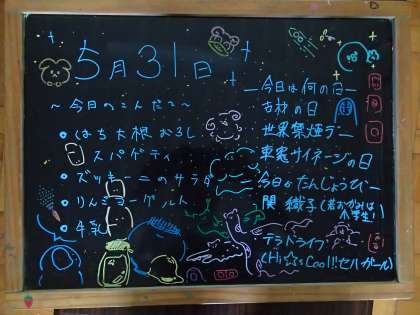 5月31日
〜今日のこんだて〜
• はち大根おろし
スパゲティ
• ズッキーニのサラダ
• りんごヨーグルト
• 牛乳
―今日は何の日―
古材の日
世界禁煙デー
東憲サイネージの日
今日がたんじょうび―
関 織子(若おかみは
小学生!)
テラドライブ
(Hi☆sCoool!セハガール)